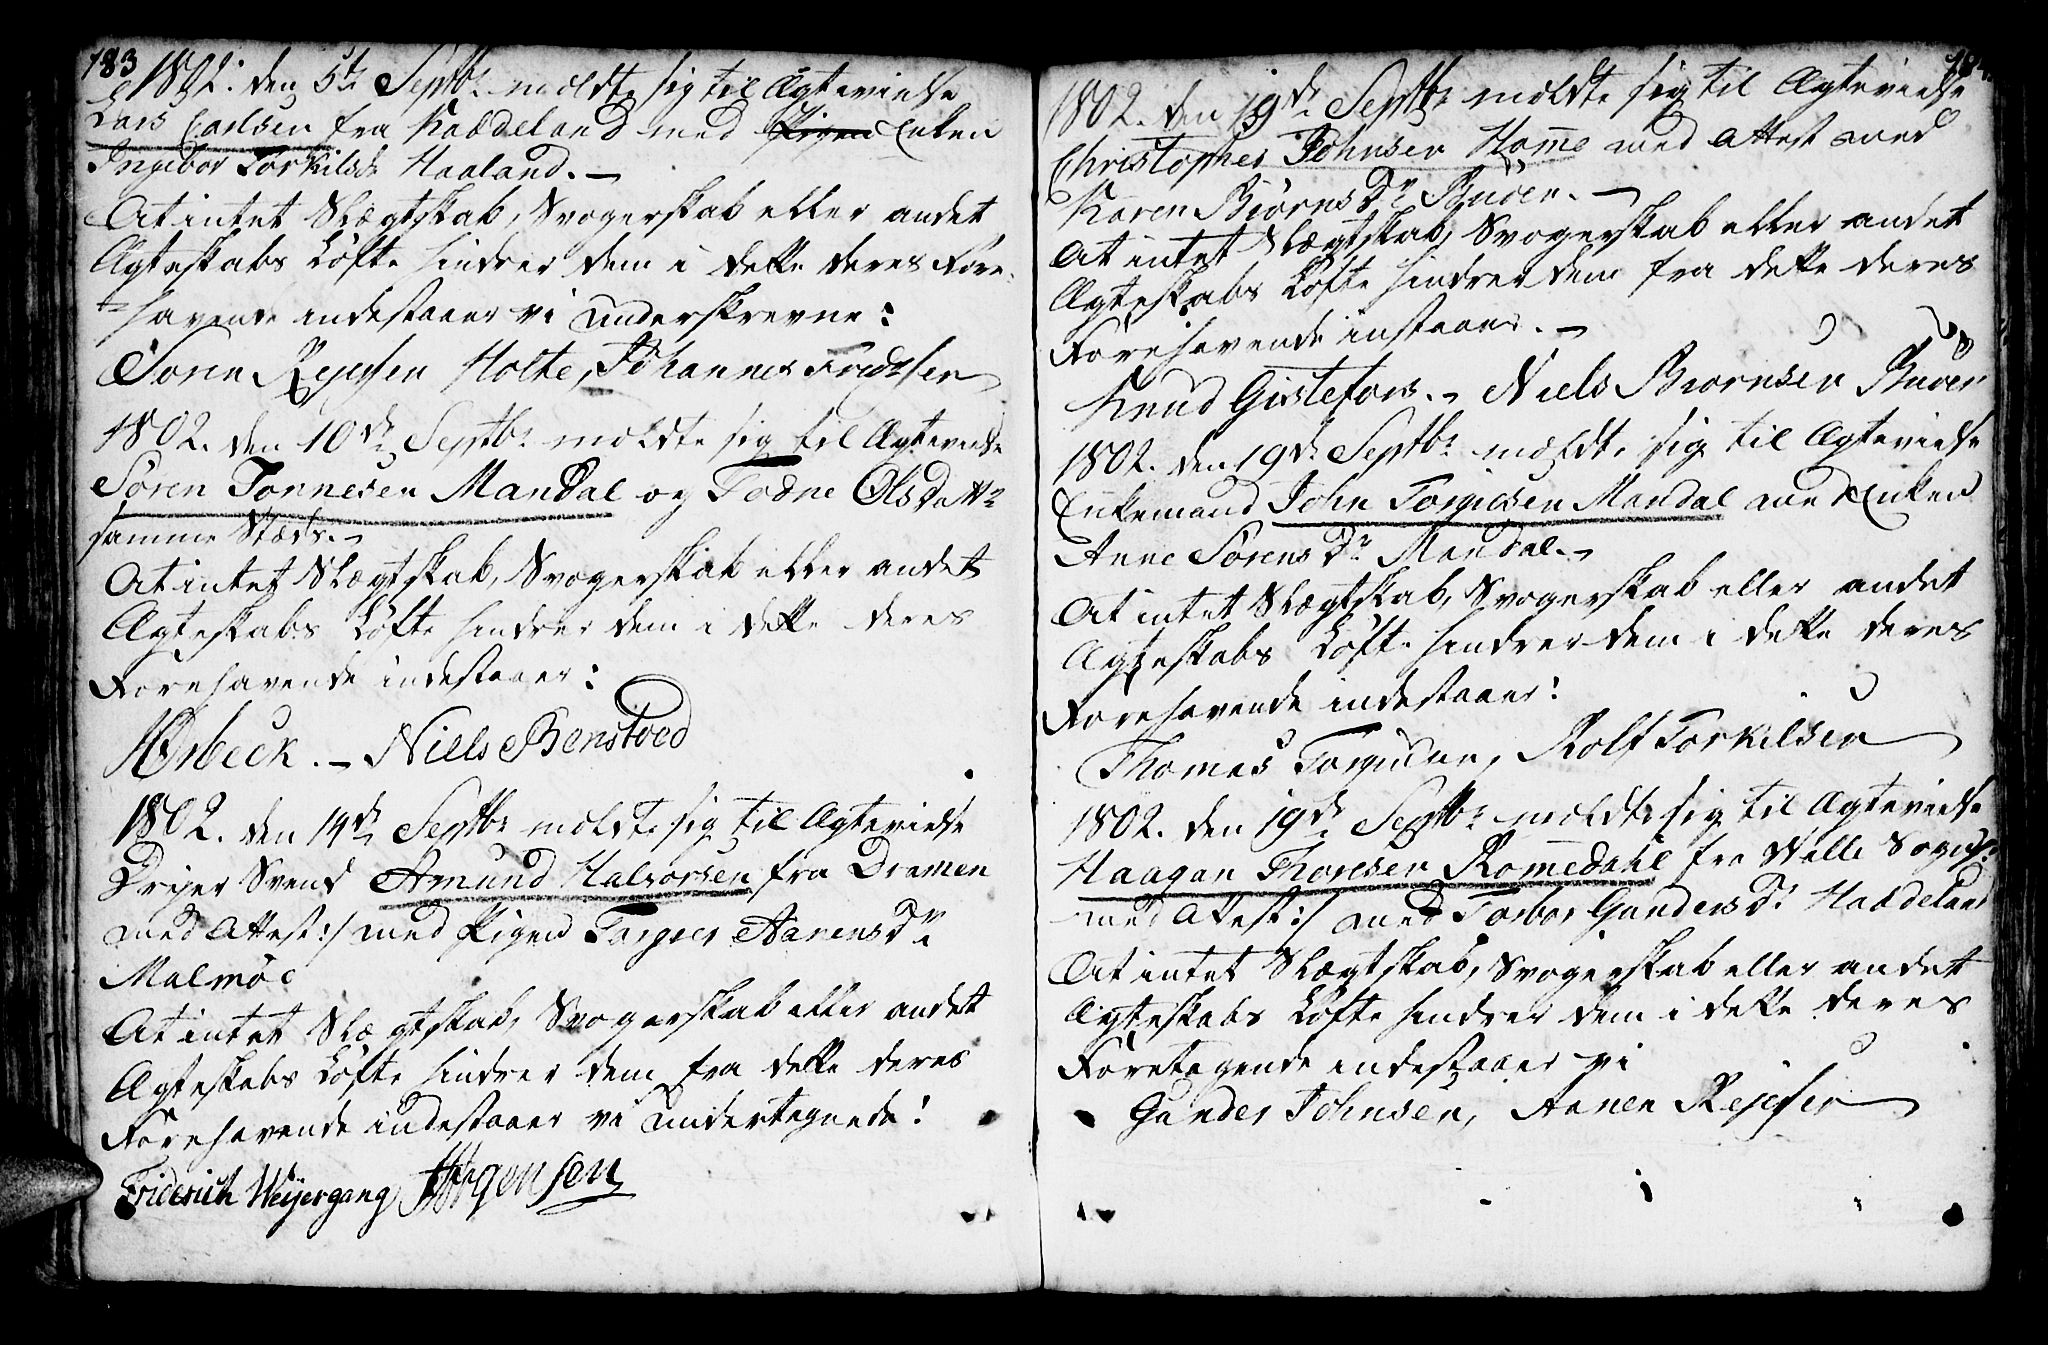 183
1802. den 5te Septbr meldte sig til Ægtevielse
Lars Carlsen fra Kaaedeland med Pigen Enken
Ingebor Torkilsdr Haaland. –
At intet Slægtskab, Svogerskab eller andet
Ægteskabs Løfte hindrer dem i dette deres Fore-
havende indestaaer vi underskrevne:
Søren Rejersen Holte, Johannes Fredrsen
1802. den 10de Septbr meldte sig til Ægtevielse
Søren Tønnesen Mandal og Todne Olsdattr
samme Stæds. –
At intet Slægtskab, Svogerskab eller andet
Ægteskabs Løfte hindrer dem i dette deres
Forehavende indestaaer:
Niels Benstoed
1802. den 14de Septbr meldte sig til Ægtevielse
Svend Amund Halvorsen fra Dramen
med Attest :/ med Pigen Torgier Aanensdr
Malmøe
At intet Slægtskab, Svogerskab eller andet
Ægteskabs Løfte hindrer dem fra dette deres
Forehavende indestaaer vi undertegnede!
Friderich Weyergang Jørgensen
1802. den 19de Septbr meldte sig til Ægtevielse
Christopher Johnsen Home med Attest med
Karen Biørnsdr Buøen. –
At intet Slægtskab, Svogerskab eller andet
Ægteskabs Løfte hindrer dem fra dette deres
Forehavende instaaer. –
Knud Gislefors. – Niels Biørnsen Buøen
1802. den 19de Septbr meldte sig til Ægtevielse
Enkemand John Torgiesen Mandal med Enken
Anne Sørensdr Mandal. –
At intet Slægtskab, Svogerskab eller andet
Ægteskabs Løfte hindrer dem i dette deres
Forehavende indestaaer!
Thomas Rolf Torkilsen
1802. den 19de Septbr meldte sig til Ægtevielse
Haagan Thoresen Romedahl fra Walle Sogn
med Attest :/ med Torbor Gundersdr Kaaedeland
At intet Slægtskab, Svogerskab eller andet
Ægteskabs Løfte hindrer dem i dette deres
Foretagende indestaaer vi
Gunder Johnsen, Aanen Rejersen